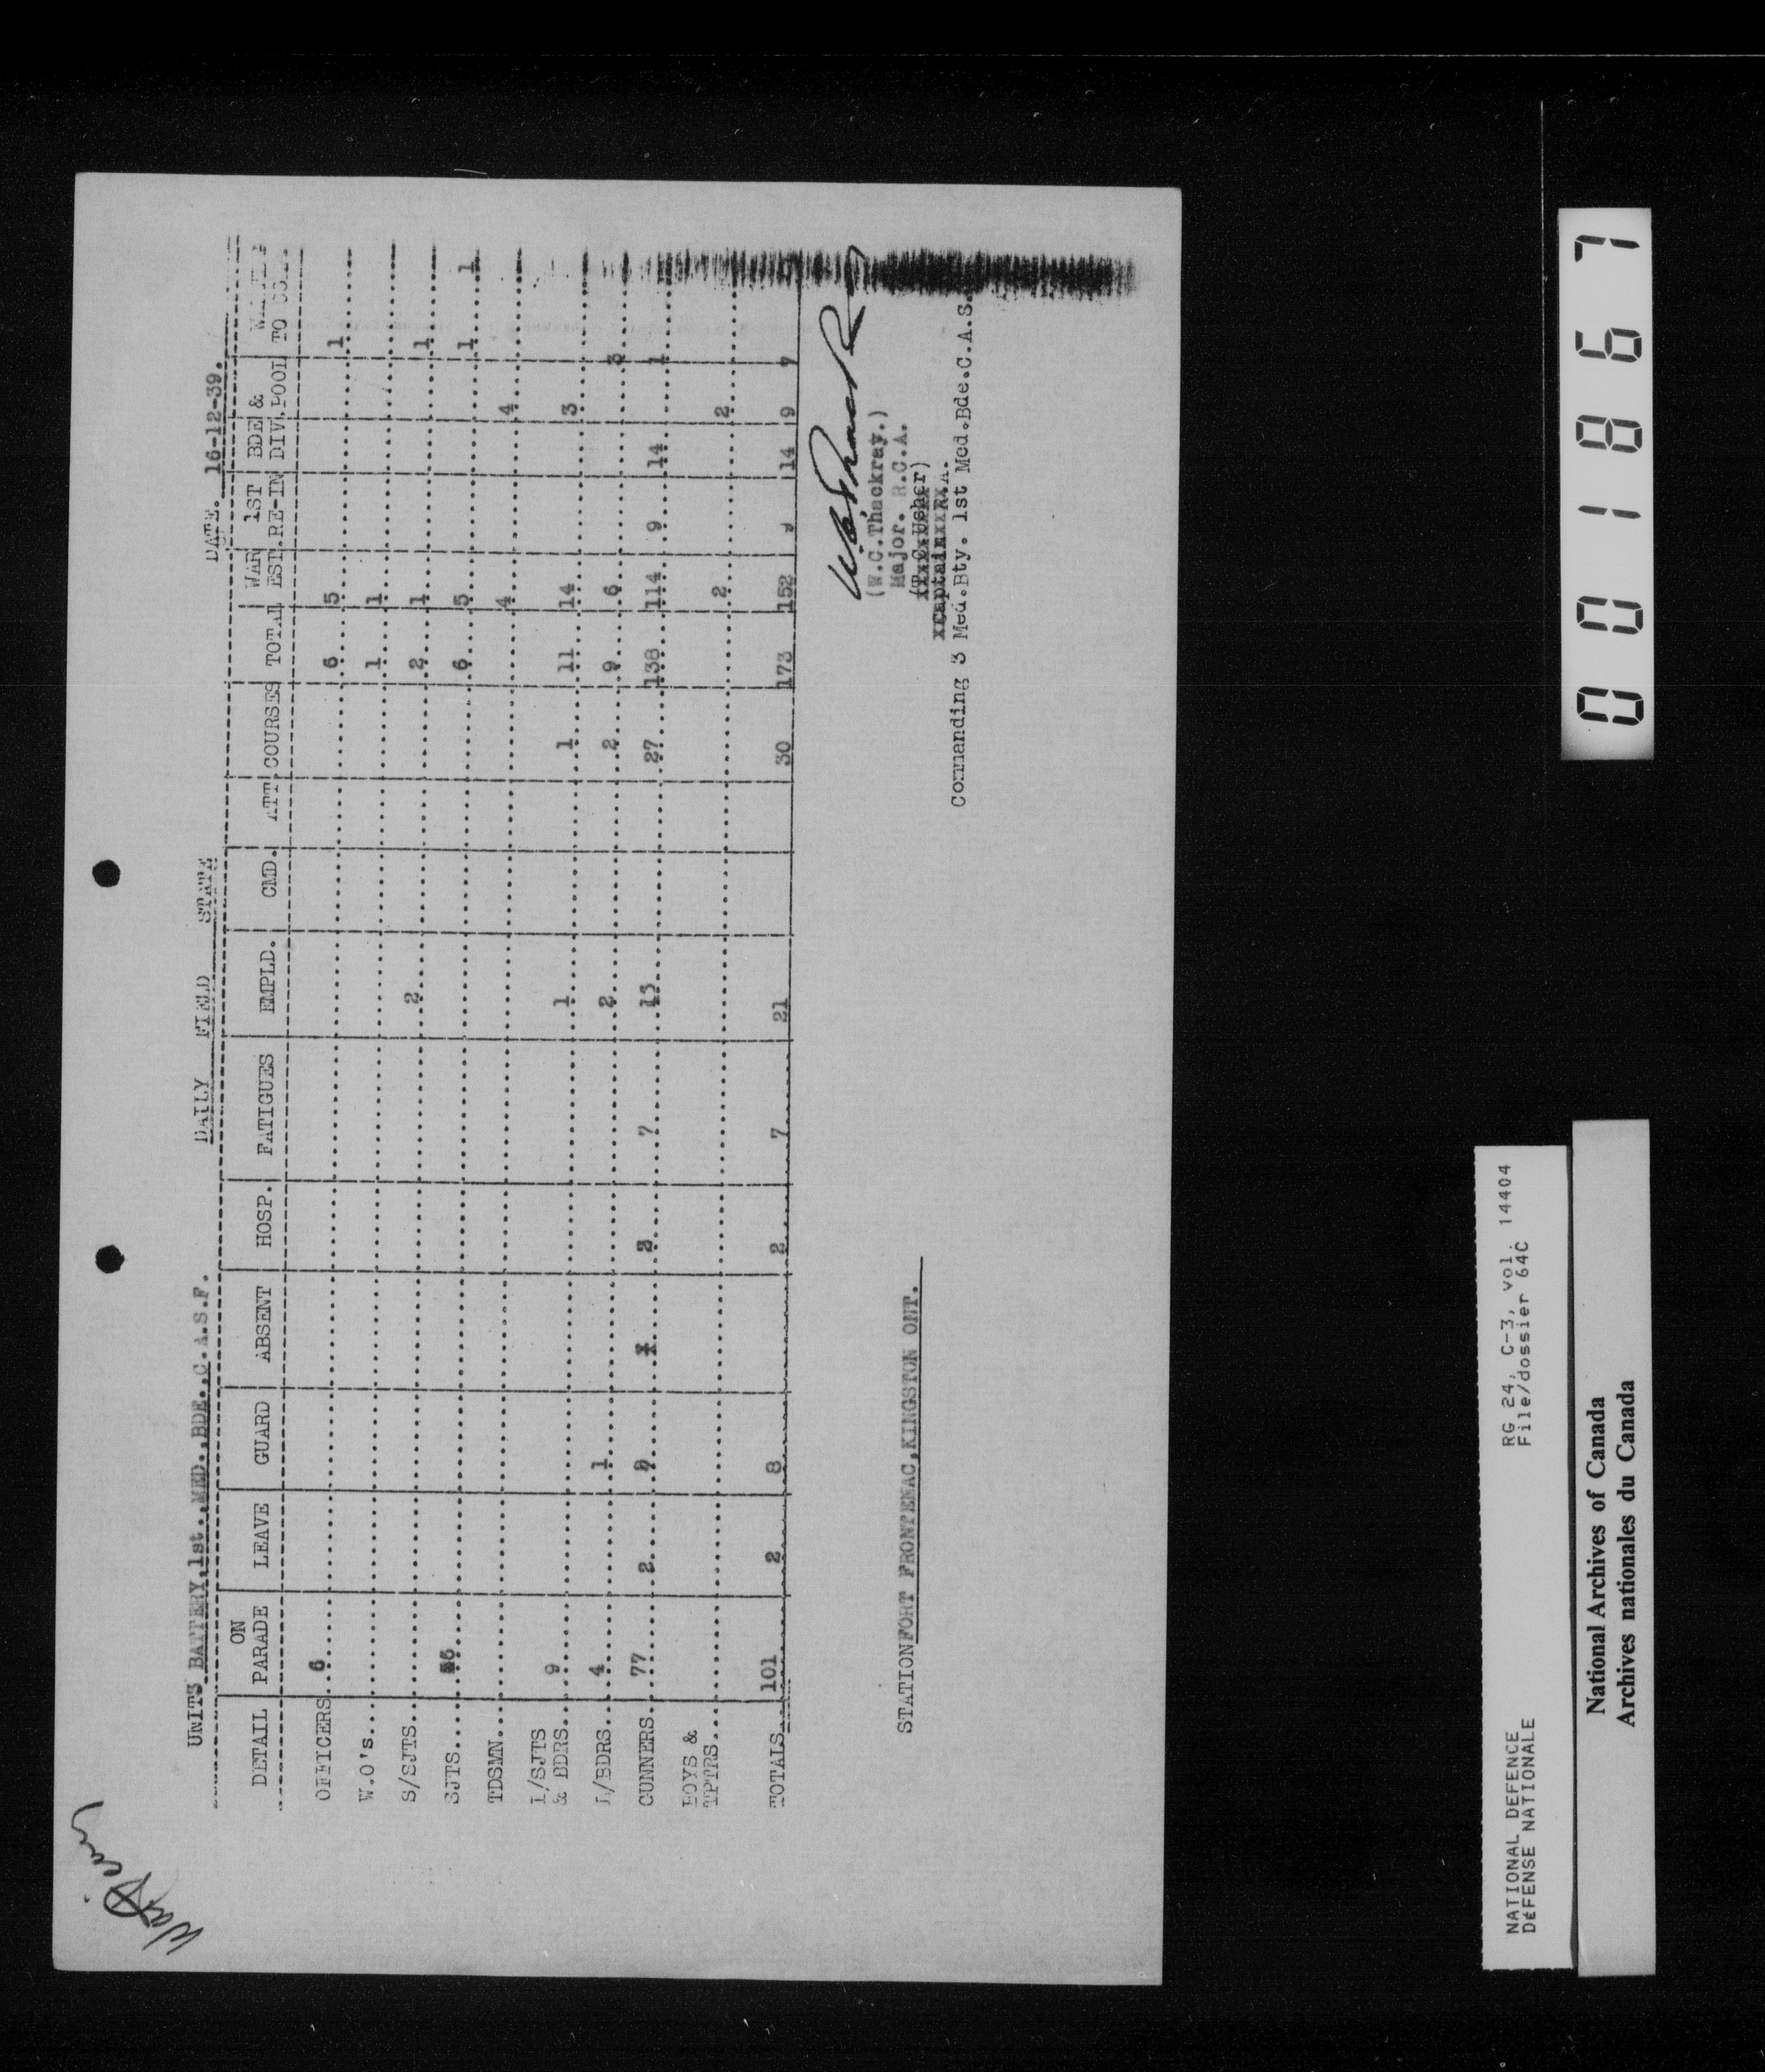 War Diary
DAILY FIELD STATE
UNIT3 BATTERY,1st..MED..BDE..C.A.S.F. DATE. 16-12-39.
DETAIL ON PARADE LEAVE GUARD ABSENT HOSP. FATIGUES EMPLD. CMD. ATT COURSES TOTAL WAR EST. 1ST RE-IN BDE & DIV.POOL
OFFICERS 6 6 5 1
W.O's 1 1
S/SJTS 2 2 1 1
SJTS 6 5 1 1
TDSMN 4 4
L/SJTS
& BDRS 9 1 1 11 14 3
L/BDRS 4 1 2 2 9 6 3
GUNNERS 77 2 7 27 138 114 9 14 1
BOYS &
TPTRS 2 2
TOTALS 101 2 8 2 7 21 30 173 152 9 14 9 7
(W.C.Thackray.)
Major. R.C.A.
Commanding 3 Med.Bty. 1st Med.Bde.C.A.S.
STATIONFORT FRONTENAC,KINGSTON ONT.
001867
NATIONAL DEFENCE RG 24, C-3, vol. 14404
DéFENSE NATIONALE File/dossier 64C
National Archives of Canada
Archives nationales du Canada